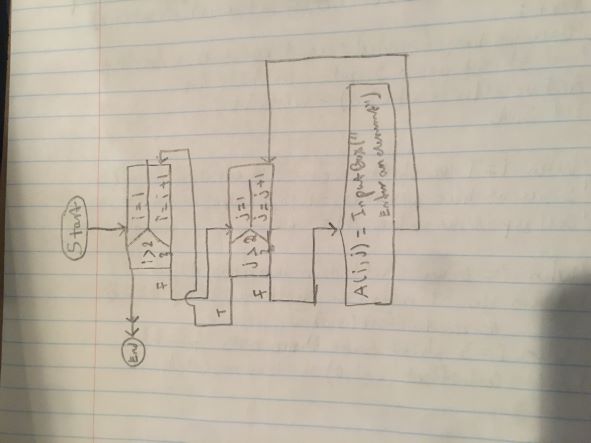 Start
End
i>2
i=1
i=i+1
F
T
j>2
j=1
j=j+1
F
A(i,j) = InputBox("
Enter an element")